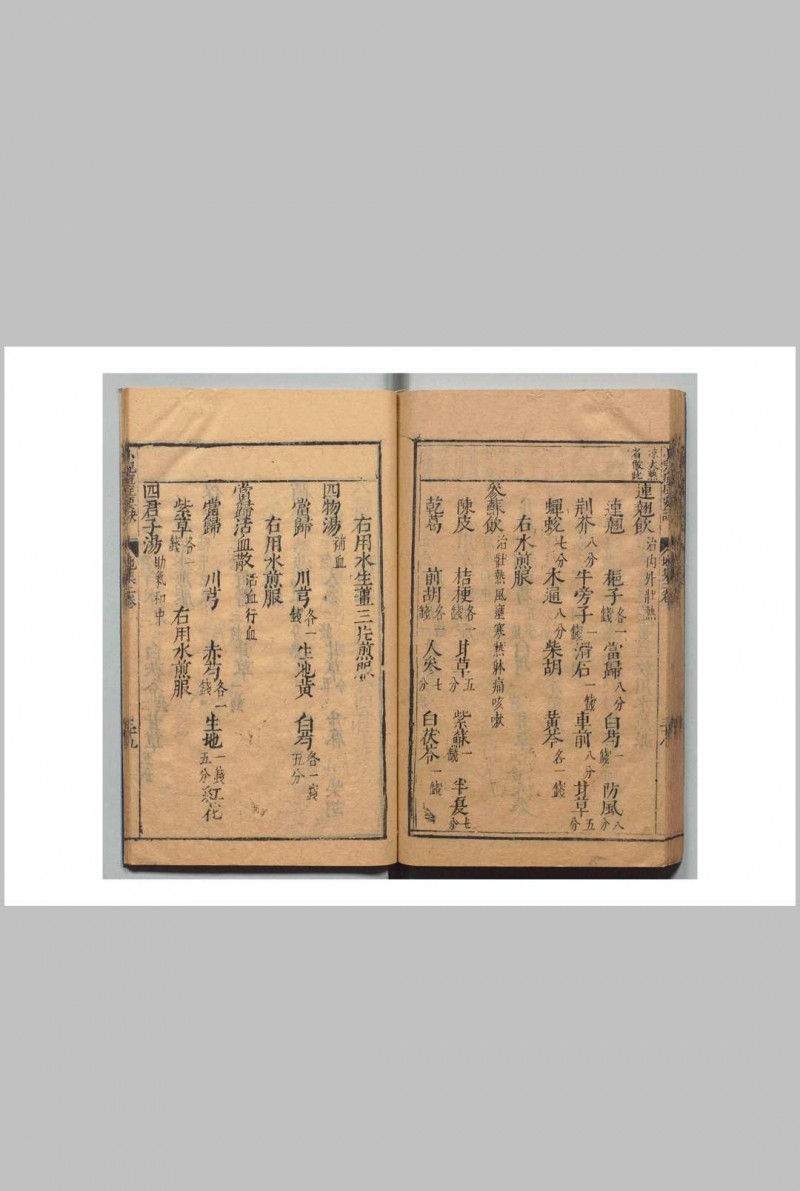 連翹飲 治內外壯熱
連翹 梔子各一錢 當歸八分 白芍一錢 防風八分
荊芥八分 牛旁子一錢 滑石一錢 車前八分 甘草五分
蟬蛻七分 木通八分 柴胡 黃芩各一錢
右水煎服
參蘇飲 治壯熱風壅寒熱躰痛咳嗽
陳皮 桔梗各錢 甘草五分 紫蘇一錢 半夏七分
乾葛 前胡各七錢 人參七分 白茯苓一錢
右用水生薑三片煎服
四物湯 補血
當歸 川芎各一錢 生地黃 白芍各一錢五分
右用水煎服
當歸活血散 活血行血
當歸 川芎 赤芍各一錢 生地一錢五分 紅花
紫草各一錢 右用水煎服
四君子湯 助氣和中